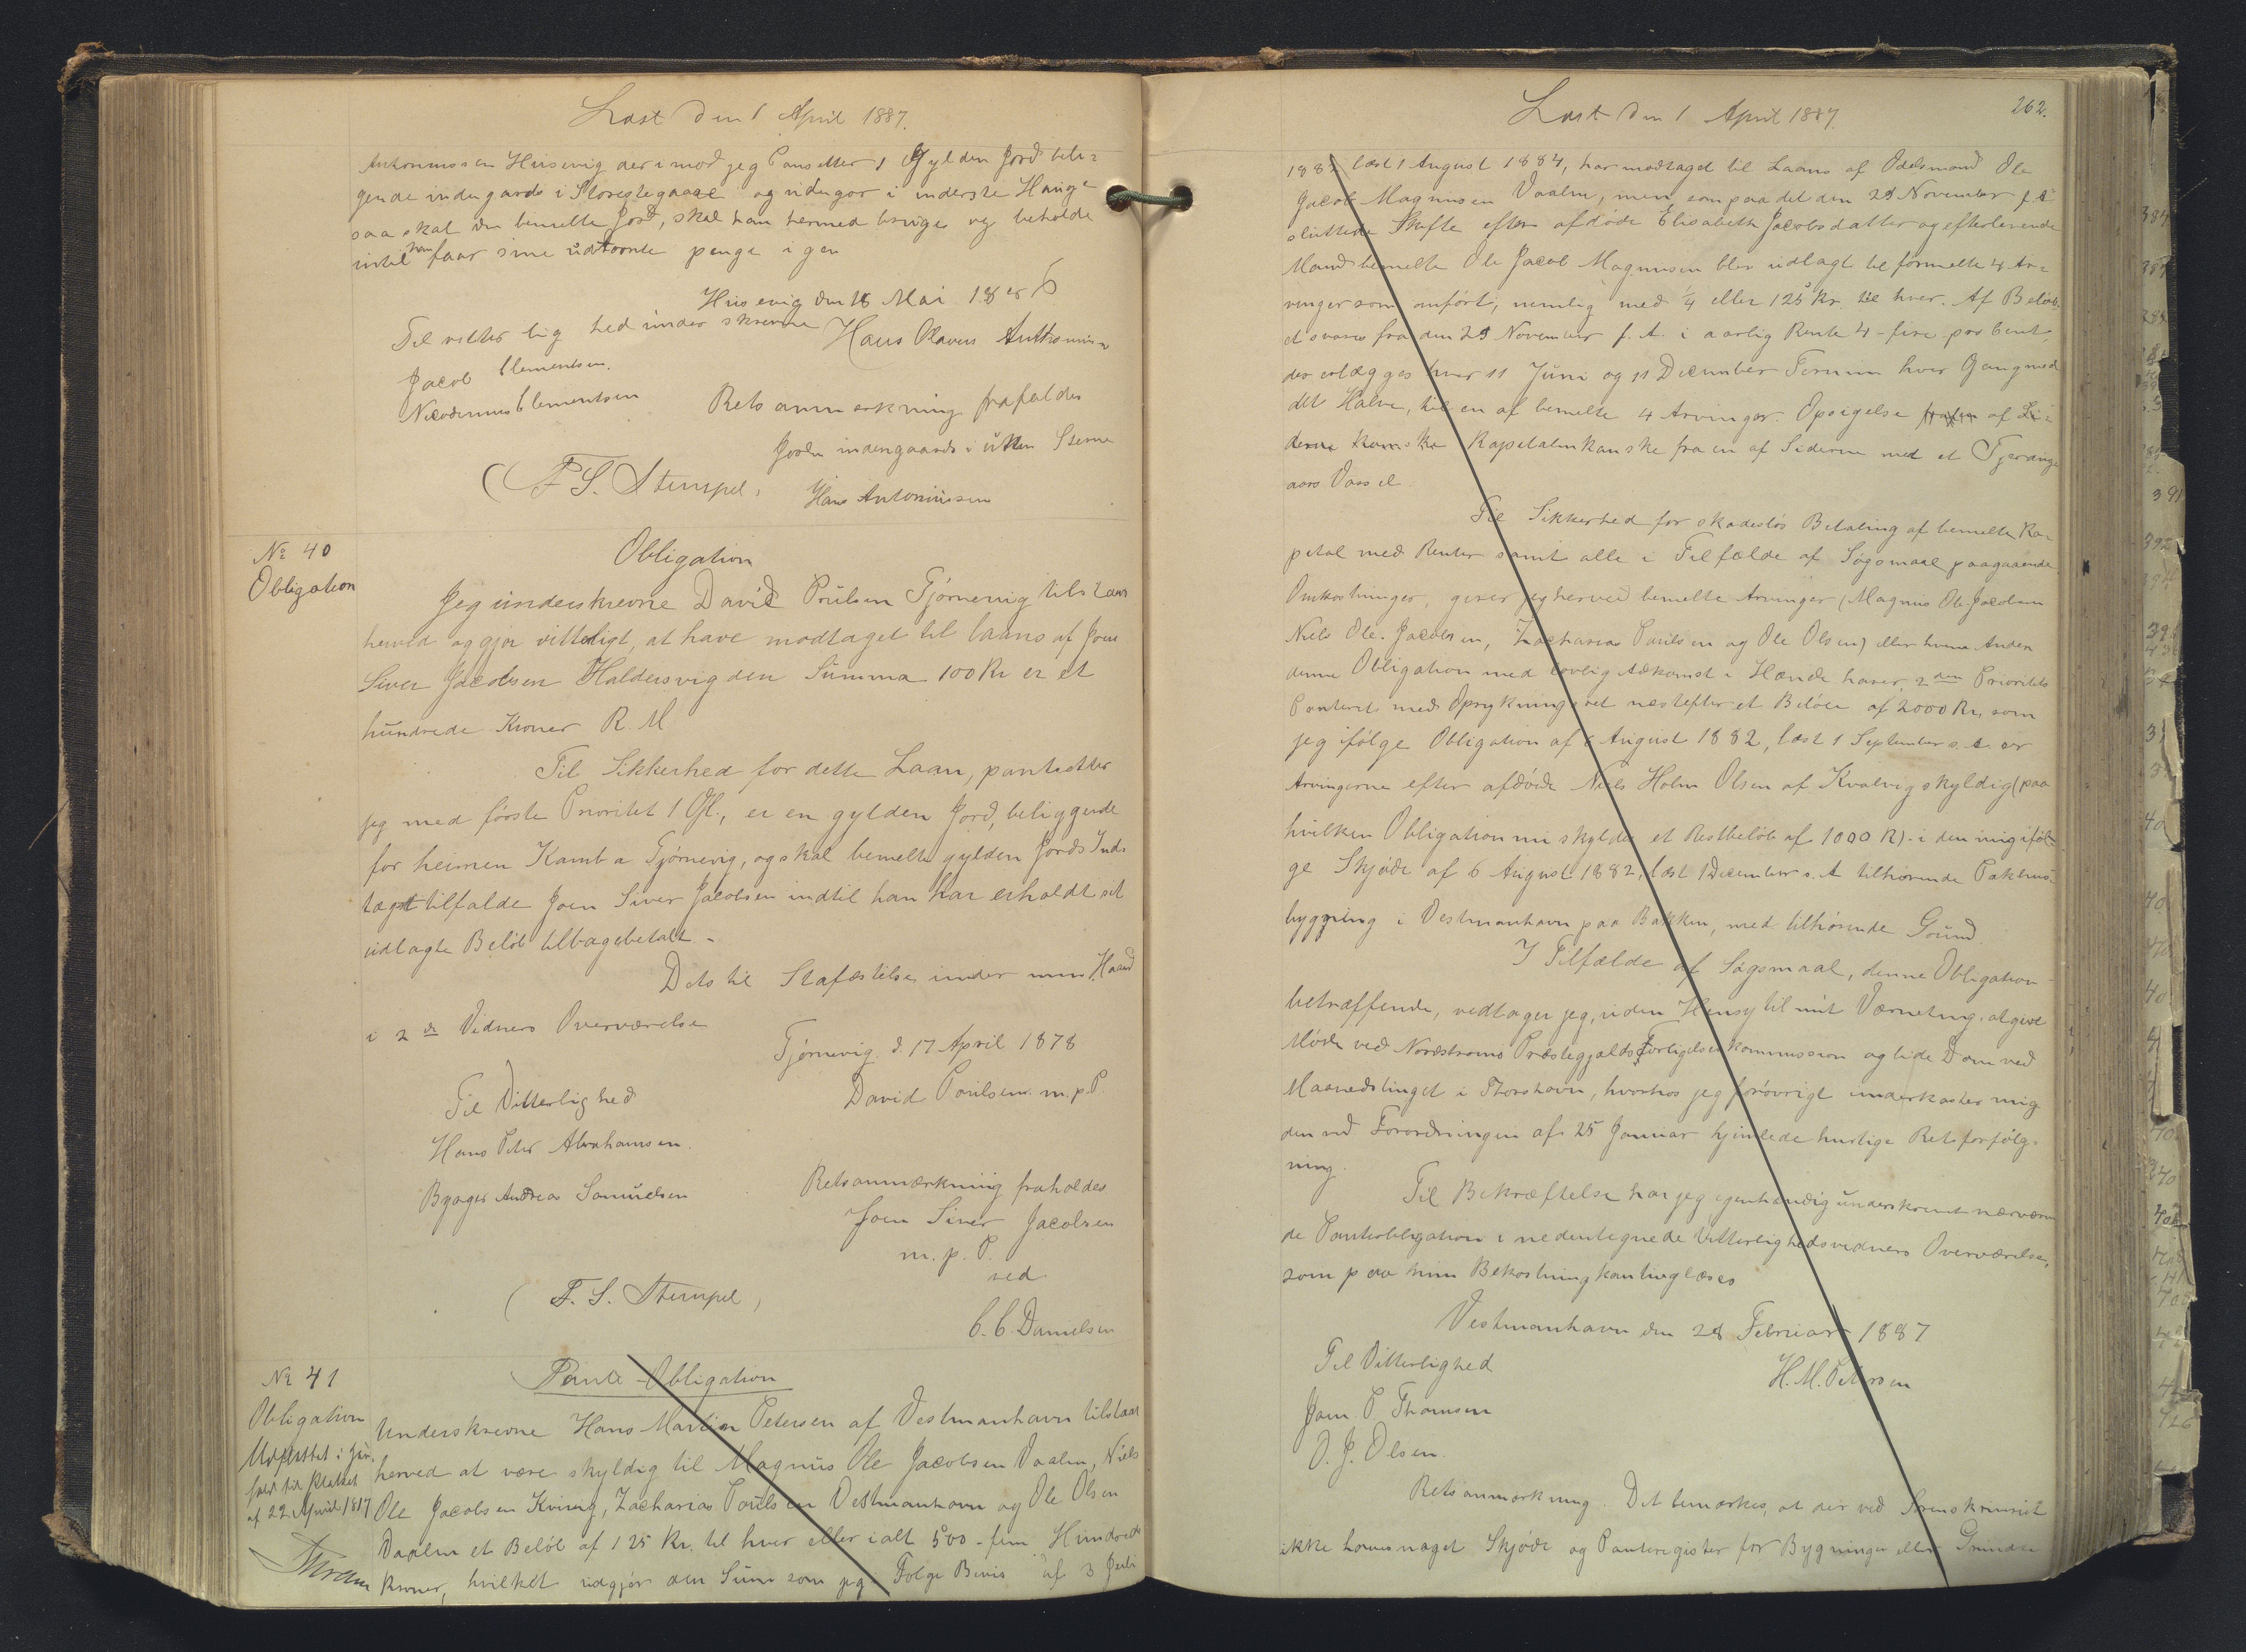 Læst den 1 April 1887.
Antoniussen Husevig derimod jeg Pansetter 1 Gylden Jord beli=
gende indengards i Storestegaard og udengor i inderste Hauge
saa skal den bemelte Jord, skal han hermed bruges og beholde
intil han faar sine udtoonte penge igen
Husevig den 18 Mai 1886
Til vitterlighed underskrevne
Hans Olavus Anthoniusen
Jacob Clementsen.
Nicodemus Clementsen
Retsanmerkning frafaldes
Jorden indengaards i utten Steme
(F. S. Stempel)
Hans Antoniusen
№ 40
Obligation
Obligation
Jeg underskrevne David Poulsen Tjørnevig tilstaar
herved og gjør vitterligt, at have modtaget til laans af Joen
Siver Jacobsen Haldersvig den Summa 100 Kr er et
hundrede Kroner R. M
Til Sikkerhed for dette Laan, pantsetter
jeg med første Prioritet 1 Gl., er en gylden Jord, beliggende
for heimen Kamba Tjørnevig, og skal bemelte gylden Jords Ind-
tægt tilfalde Joen Siver Jacobsen indtil han har erholdt sit
udlagte Beløb tilbagebetalt -
Dets til Stafæstelse under min Haand
i 2de Vidners Overværelse
Tjørnevig d. 17 April 1878
Til Vitterlighed
David Poulsen m. p. P.
Hans Peter Abrahamsen.
Byager Andreas Samuelsen
Retsanmærkning fraholdes
Joen Siver Jacobsen
m. p. P.
ved
(F. S. Stempel)
C. C. Danielsen
№ 41
Obligation
Udslettet i Hen-
hold til Plakat
af 22 April 1817
Pante-Obligation
Underskrevne Hans Martin Petersen af Vestmanhavn tilstaar
herved at være skyldig til Magnus Ole Jacobsen Vaalen, Niels
Ole Jacobsen Kvivig, Zacharias Poulsen Vestmanhavn og Ole Olsen
Vaalen et Beløb af 125 Kr. til hver eller ialt 500 - fem Hundrede
Kroner, hvilket udgjør den Sum som jeg i Følge Bevis af 3 Juli
Læst den 1 April 1887.
262.
læst 1 August 1884, har modtaget til Laans af Odelsmand Ole
Jacob Magnusen Vaalen, men som paa det den 29 November f. A
sluttede Skifte efter afdøde Elisabeth Jacobsdatter og efterlevende
Mand bemelte Ole Jacob Magnusen blev udlagt til formelte 4 Ar=
vinger som anført, nemlig med 1/4 eller 125 Kr. til hver. Af Beløb-
et svares fra den 29 November f. A. i aarlig Rente 4 - fire pro Cent,
der erlægges hver 11 Juni og 11 December Termin hver Gang med
det Halve, til en af bemelte 4 Arvinger. Opsigelse af Si=
derne kan ske Kapitalen kan ske fra en af Siderne med et Fjerdings
aars Varsel
Til Sikkerhed for skadesløs Betaling af bemelte Ka-
pital med Renter samt alle i Tilfælde af Søgsmaal paagaaende
Omkostninger, giver jeg herved bemelte Arvinger (Magnus Ole Jacobsen
Niels Ole Jacobsen, Zacharias Poulsen og Ole Olsen) eller hvem Anden
denne Obligation med lovlig Adkomst i Hænde haver, 2den Prioritets
Panteret med Oprykningsret næstefter et Beløb af 2000 Kr, som
jeg ifølge Obligation af 6 August 1882, læst 1 September s. A. er
Arvingerne efter afdøde Niels Holm Olsen af Kvalvig skyldig (paa
hvilken Obligation nu skyldes et Restbeløb af 1000 Kr) - i den mig iføl=
ge Skjøde af 6 August 1882, læst 1 December s. A tilhørende Pakhus-
bygning i Vestmanhavn paa Bakken, med tilhørende Grund.
I Tilfælde af Søgsmaal, denne Obligation
betræffende, vedtager jeg, uden Hensyn til mit Værneting, at give
Møde ved Nordstrømø Præstegjælds Forligelseskommission og lide Dom ved
Maanedstinget i Thorshavn, hvorhos jeg forøvrigt underkaster mig
den ved Forordningen af 25 Januar hjemlede hurtige Retsforfølg-
ning.
Til Bekræftelse har jeg egenhændig underskrevet nærværen
de Panteobligation i nedentegnede Vitterlighedsvidners Overværelse,
som paa min Bekostning kan tinglæses
Vestmanhavn den 28 Februar 1887
Til Vitterlighed
H. M. Petersen
Joen P. Thomsen
O. J. Olsen.
Retsanmærkning. Det bemærkes, at der ved Sorenskriveriet
ikke haves noget Skjøde og Panteregister for Bygninger eller Grunde